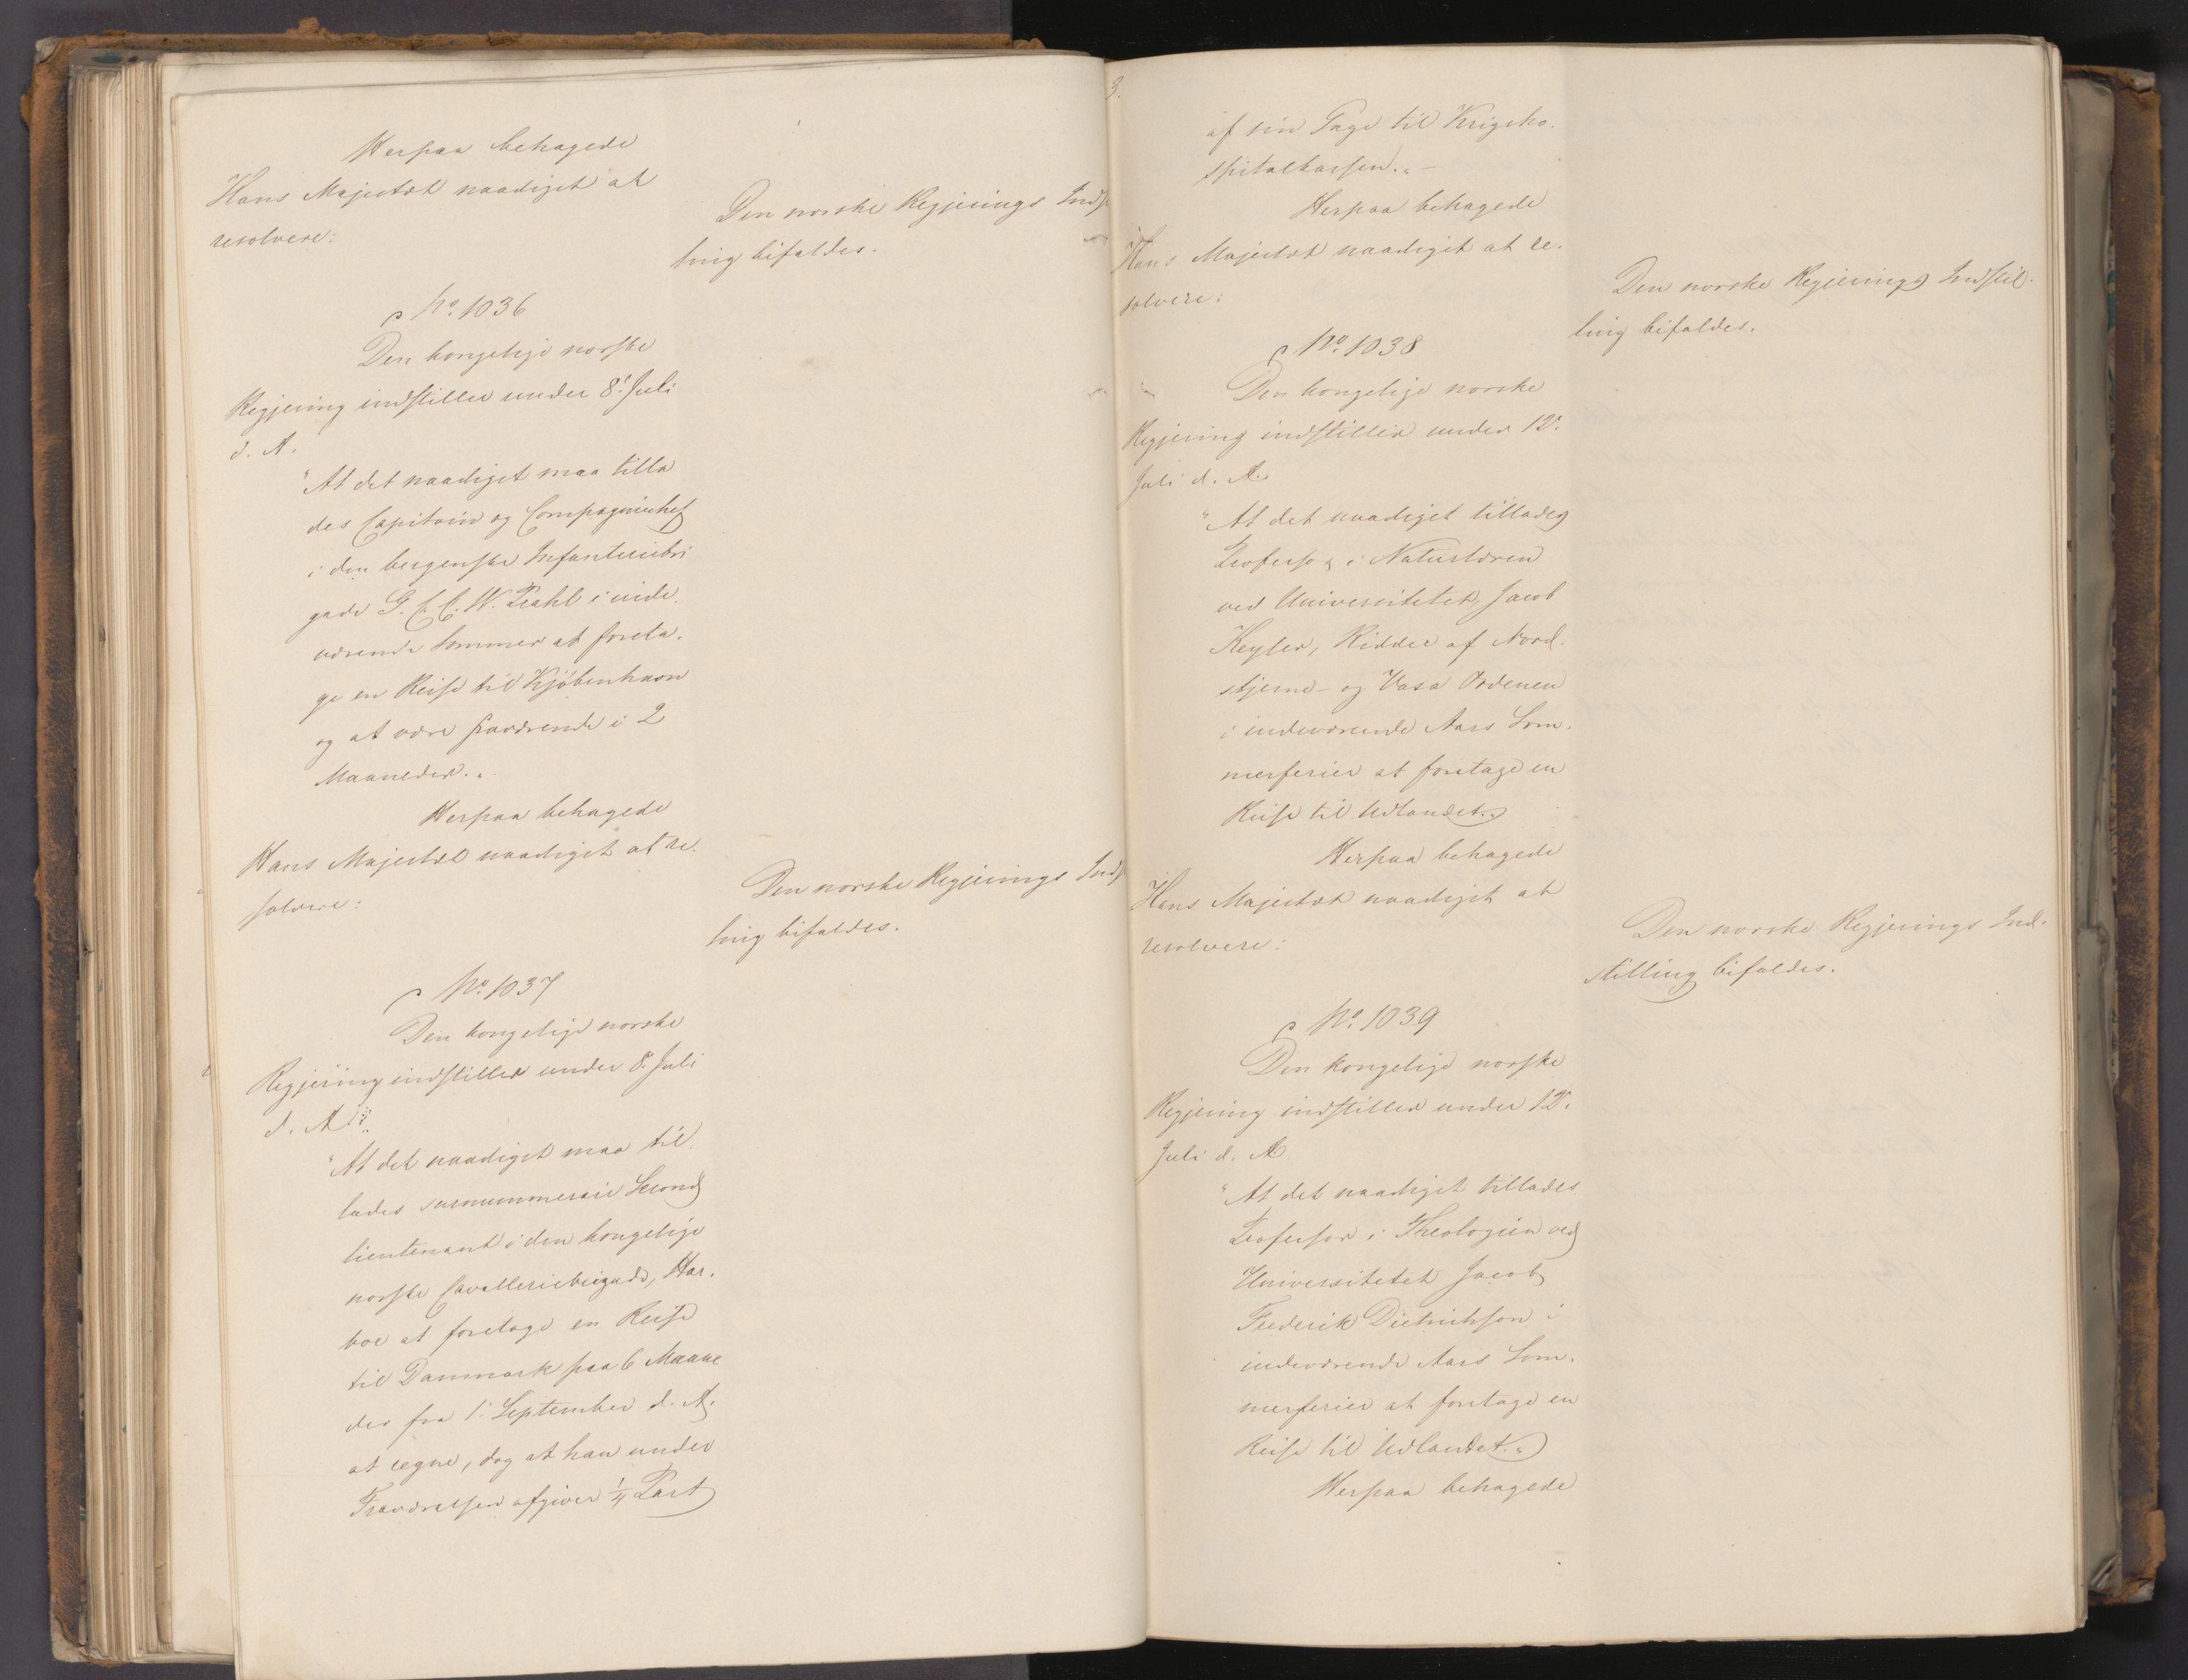 Herpaa behagede
Hans Majestæt naadigst at
resolvere:
Den norske Regjerings Indst
ling bifaldes.
No. 1036
Den kongelige norske
Regjering indstiller under 8. Juli
d. A.
"At det naadigst maa tilla
des Capitain og Compagniechef
i den bergenske Infanteriebri
gade G. C. C. W. Prahl i inde
værende Sommer at foreta-
ge en Reise til Kjøbenhavn
og at være fraværende i 2
Maaneder."
Herpaa behagede
Hans Majestæt naadigst at re-
solvere:
Den norske Regjerings Indst
ling bifaldes.
No. 1037
Den kongelige norske
Regjering indstiller under 8. Juli
d. A.:
"At det naadigst maa til
lades surnummerair Second
lieutenant i den kongelige
norske Cavalleriebrigade, Har-
boe at foretage en Reise
til Danmark paa 6 Maane
der fra 1. September d. A.
at regne, dog at han under
Fraværelsen afgiver 1/4 Part
3.
af sin Gage til Krigsho-
spitalkassen." -
Herpaa behagede
Hans Majestæt naadigst at re-
solvere:
Den norske Regjerings Indstil-
ling bifaldes.
No. 1038
Den kongelige norske
Regjering indstiller under 12.
Juli d. A.
"At det naadigst tillades
Professor i Naturlæren
ved Universitetet, Jacob
Keyser, Ridder af Nord-
stjerne- og Vasa Ordenen
i indeværende Aars Som-
merferier at foretage en
Reise til Udlandet."
Herpaa behagede
Hans Majestæt naadigst at
resolvere:
Den norske Regjerings Ind-
stilling bifaldes.
No. 1039
Den kongelige norske
Regjering indstiller under 12.
Juli d. A.
"At det naadigst tillades
Professor i Theologien ved
Universitetet Jacob
Frederik Dietrichson i
indeværende Aars Som-
merferier at foretage en
Reise til Udlandet."
Herpaa behagede